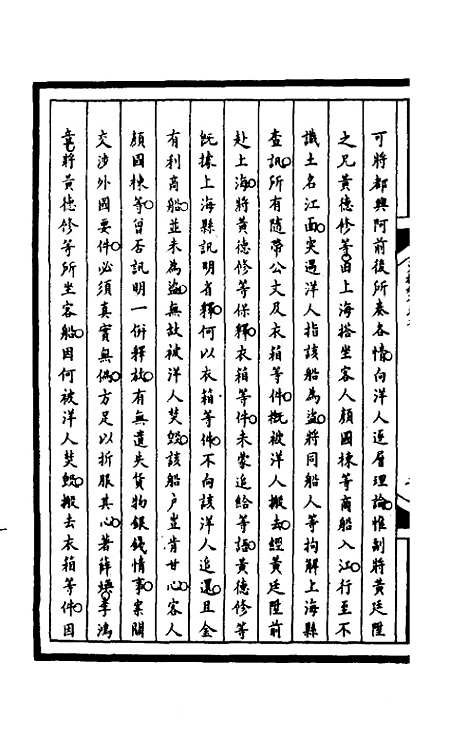 可將都興阿前後所奏各情向洋人逐層理論惟副將黃廷陞
之兄黃德修等由上海搭坐客人顏國棟等商船入江行至不
識土名江面突遇洋人指該船為盜將同船人等拘解上海縣
查訊所有隨帶公文及衣箱等件概被洋人搬去經黃廷陞前
赴上海將黃德修等保釋衣箱等件未蒙追給等語黃德修等
既據上海縣訊明省釋何以衣箱等件不向該洋人追還且金
有利商船並未為盜無故被洋人焚燬該船戶豈肯甘心客人
顏國棟等曾否訊明一併釋放有無遺失貨物銀錢情事案關
交涉外國要件必須真實無偽方足以折服其心著薛煥李鴻
章將黃德修等所坐客船因何被洋人焚燬搬去衣箱等件因